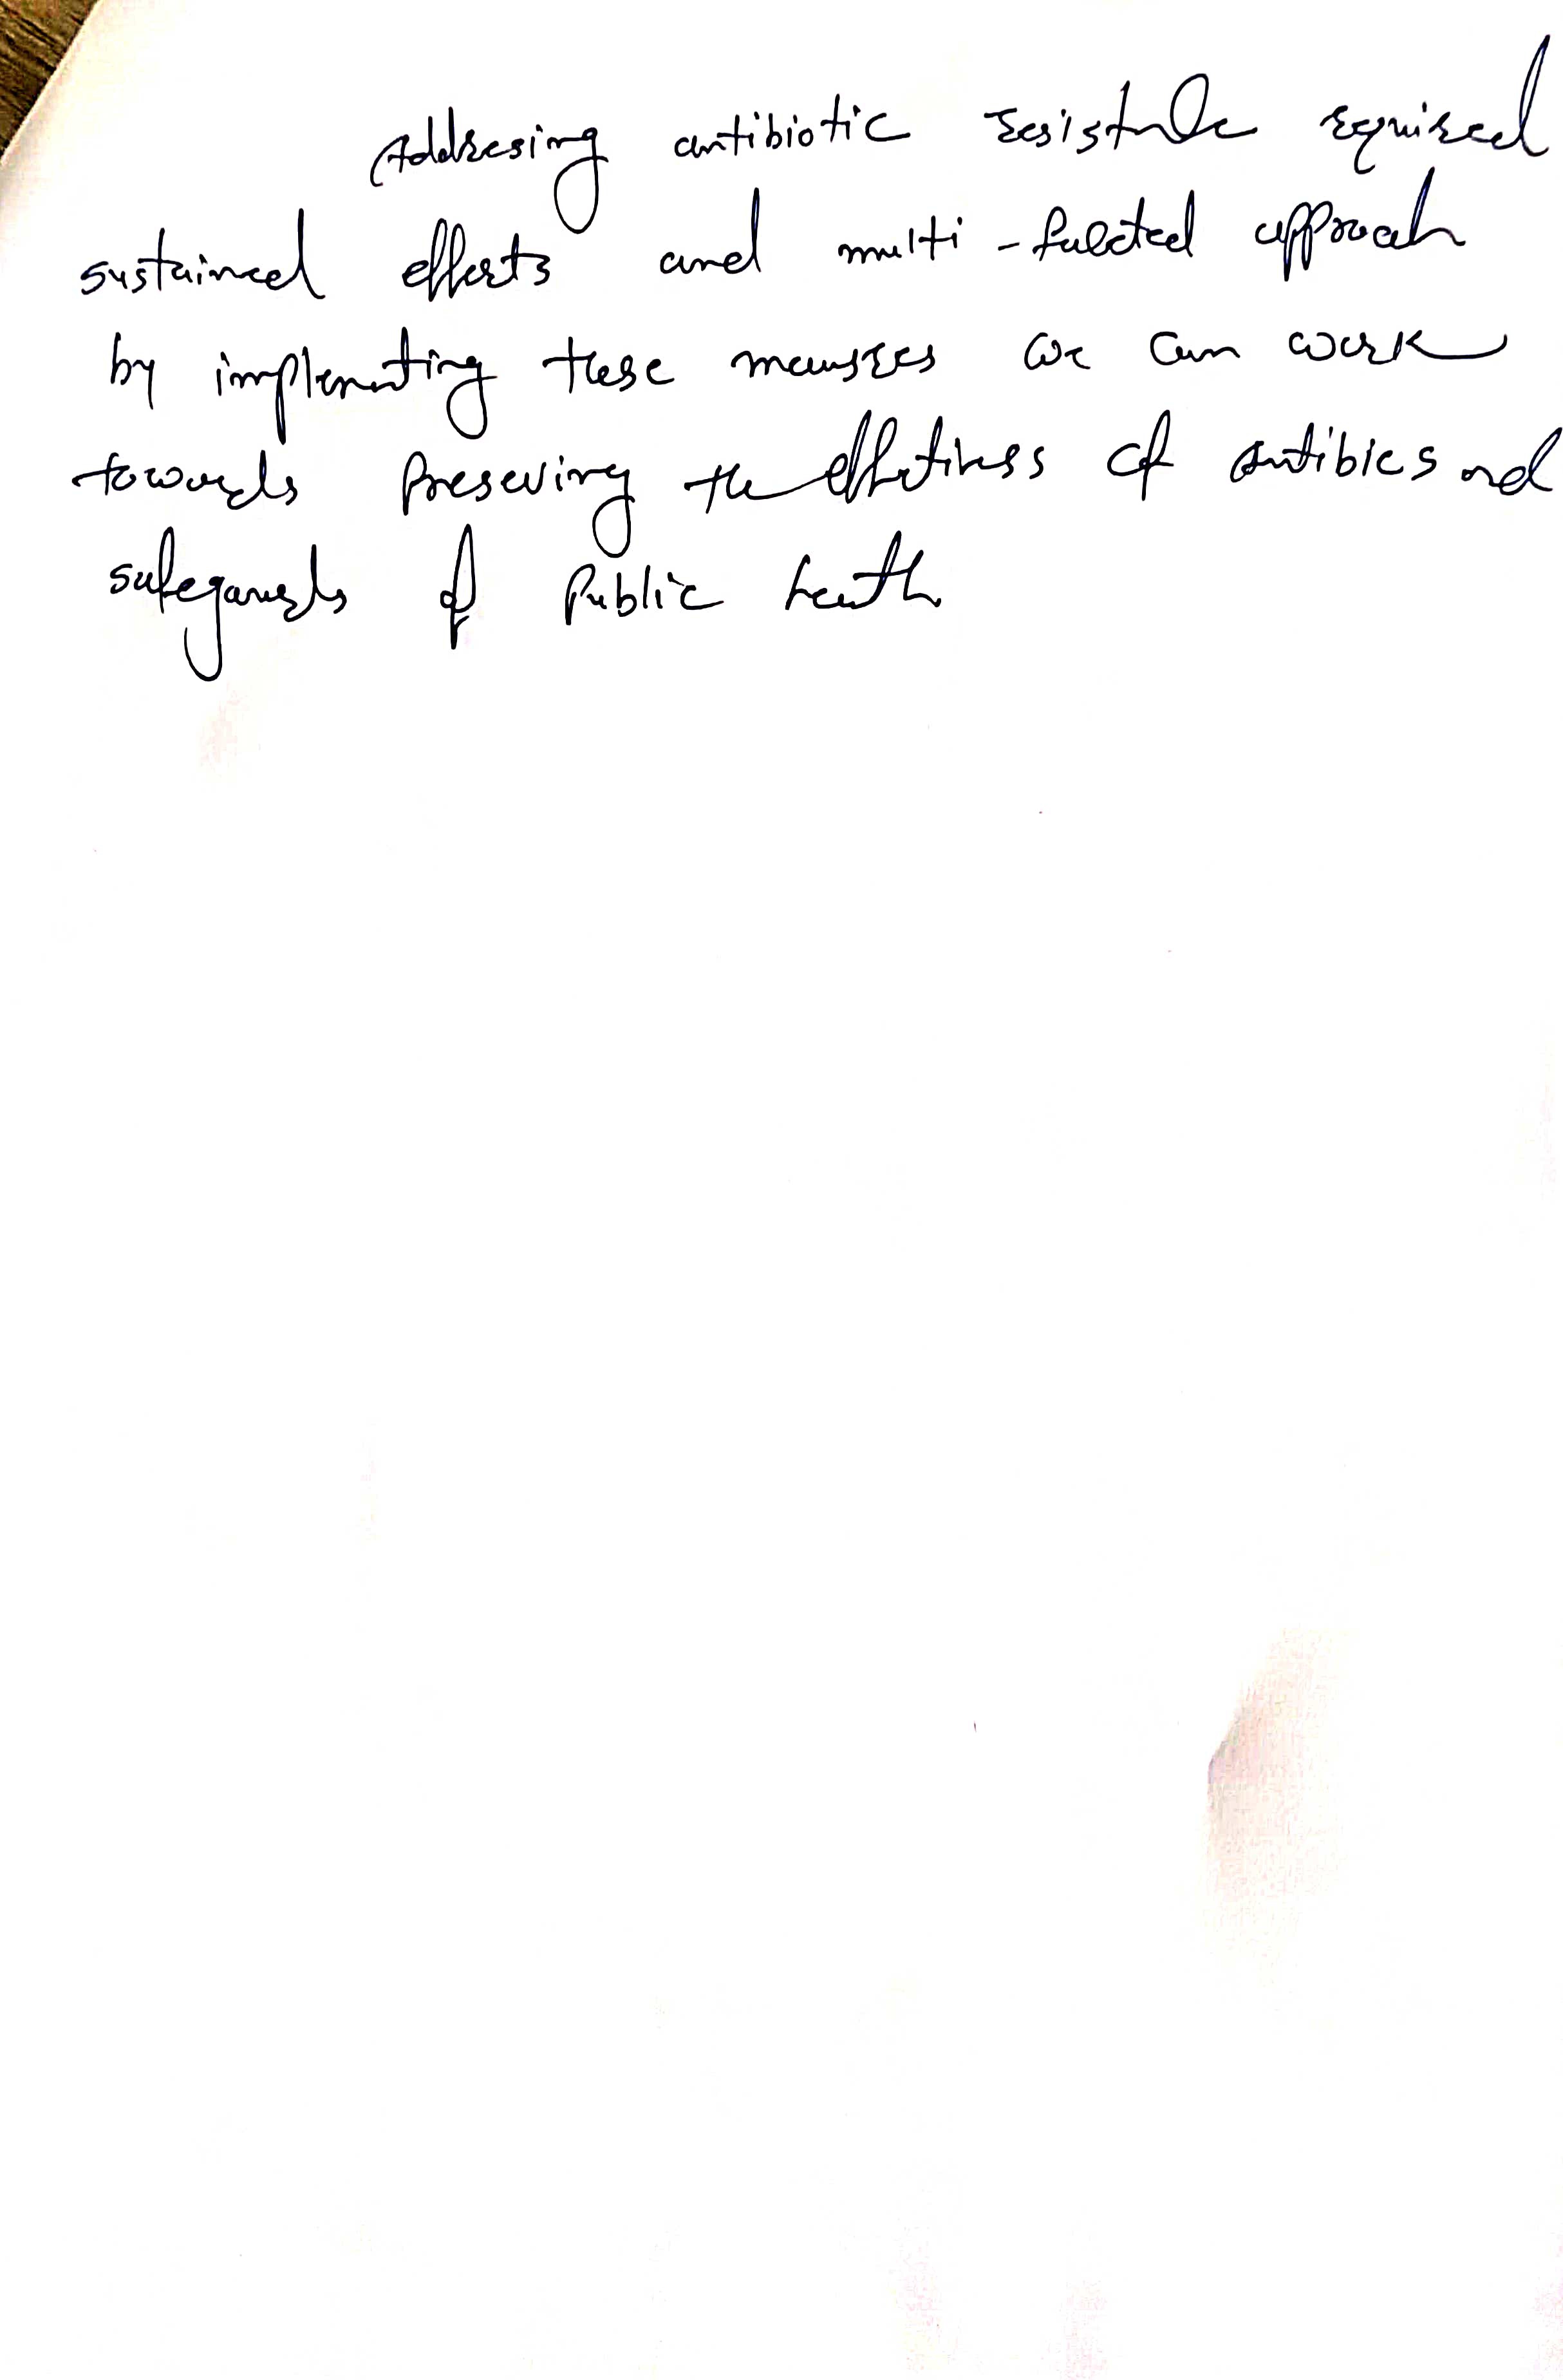 Addresing antibiotic resistance required
sustained efforts and multi-faceted approach
by implementing these measures we can work
towards Preserving the effectiveness of antibics and
safeguards of Public health